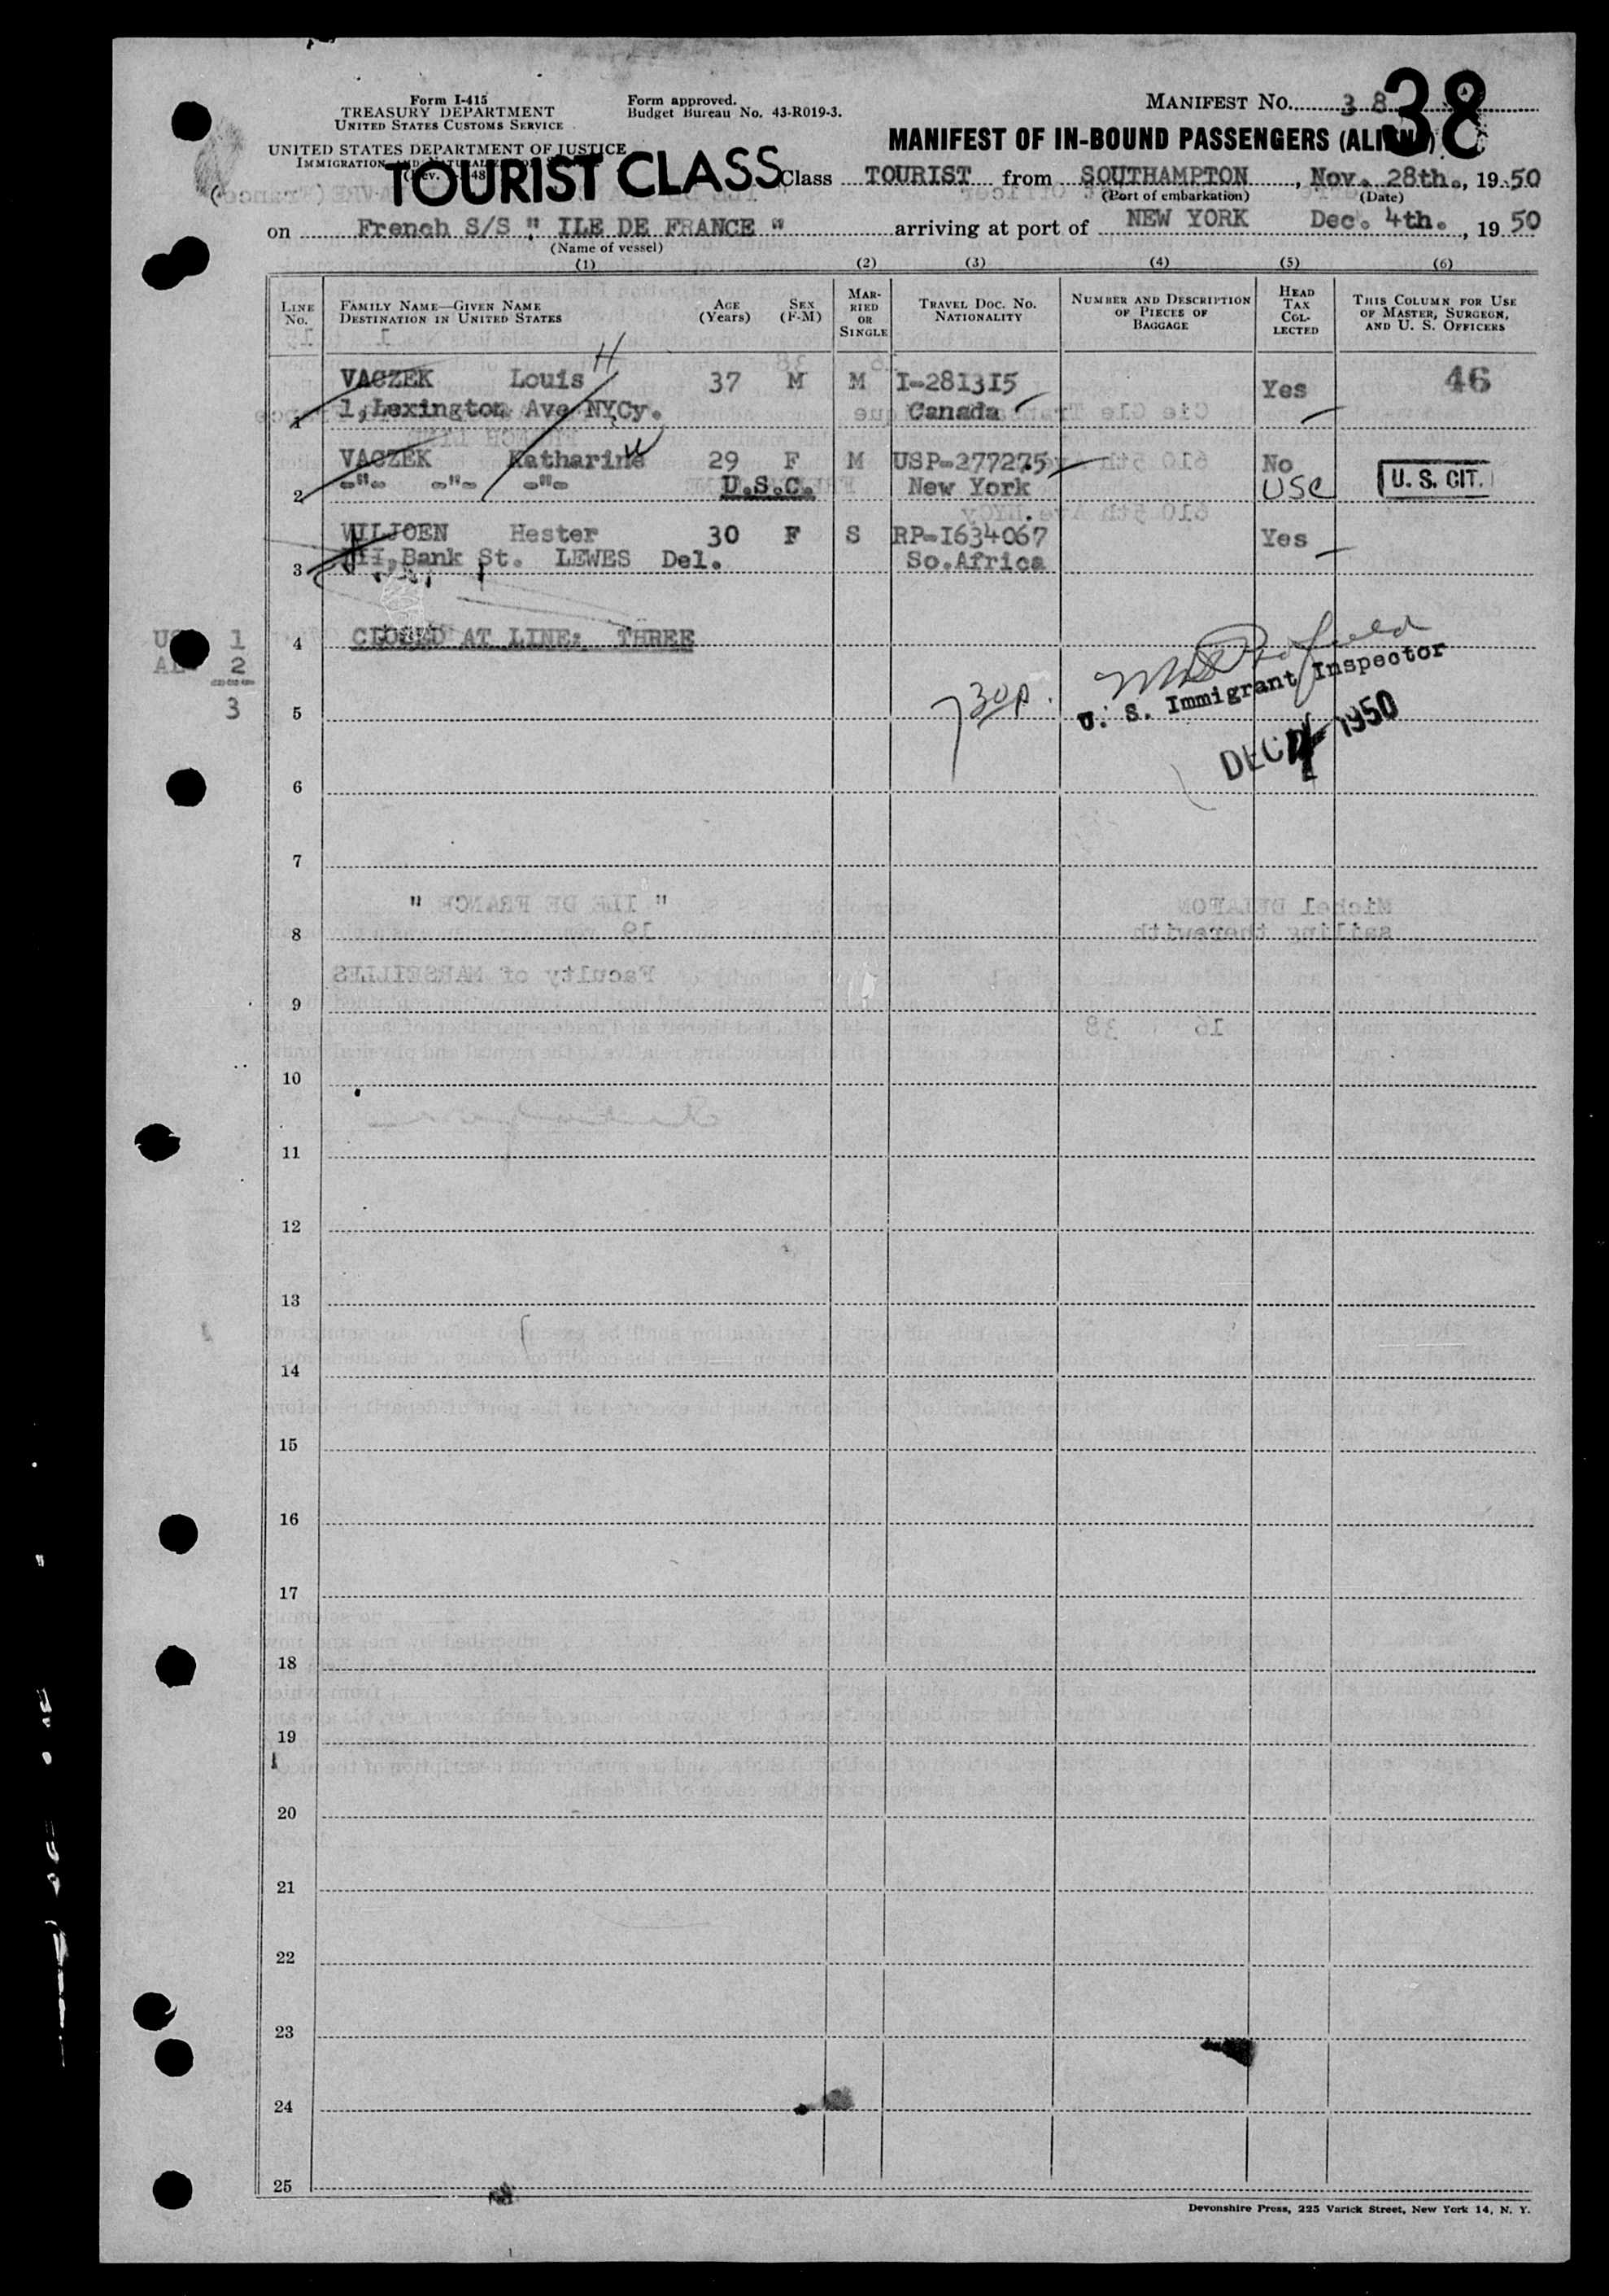 Form I-415
TREASURY DEPARTMENT
UNITED STATES CUSTOMS SERVICE
UNITED STATES DEPARTMENT OF JUSTICE
Form approved.
Budget Bureau No. 43-R019-3.
MANIFEST NO. 38
38
MANIFEST OF IN-BOUND PASSENGERS
TOURIST CLASS
Class TOURIST from SOUTHAMPTON, Nov. 28th., 1950
(Port of embarkation) (Date)
on French S/S " ILE DE FRANCE " arriving at port of NEW YORK Dec. 4th., 1950
(Name of vessel)
(1) (2) (3) (4) (5) (6)
LINE NO.
FAMILY NAME—GIVEN NAME
DESTINATION IN UNITED STATES
AGE (Years)
SEX (F-M)
MARRIED OR SINGLE
TRAVEL DOC. NO.
NATIONALITY
NUMBER AND DESCRIPTION OF PIECES OF BAGGAGE
HEAD TAX COLLECTED
THIS COLUMN FOR USE OF MASTER, SURGEON, AND U. S. OFFICERS
H
VACZEK Louis 37 M M I-281315 Yes 46
1 1,Lexington Ave NYCy. Canada
W
VACZEK Katharine 29 F M USP-277275 No
2 -"- -"- -"- U.S.C. New York USC U. S. CIT.
VILJOEN Hester 30 F S RP-I634067 Yes
3 Bank St. LEWES Del. So.Africa
1
2
3
4 CLOSED AT LINE: THREE
730p.
U. S. Immigrant Inspector
DEC 4 1950
5
6
7
8
9
10
11
12
13
14
15
16
17
18
19
20
21
22
23
24
25
Devonshire Press, 225 Varick Street, New York 14, N. Y.